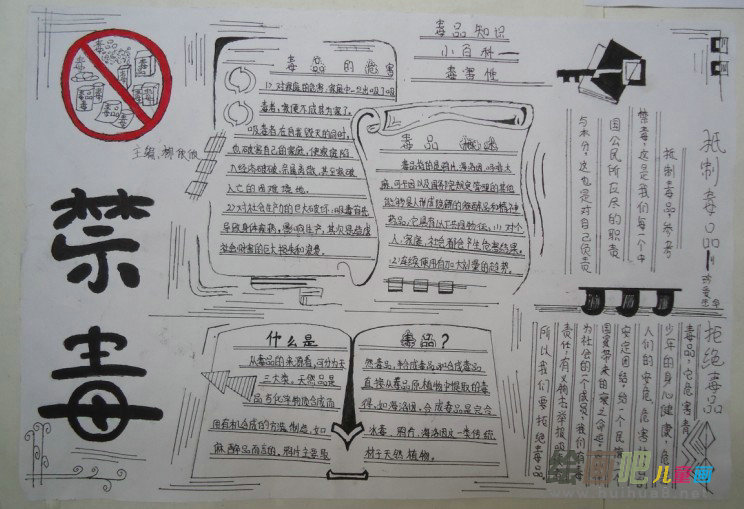 毒品知识
小百科
毒害性
禁毒
主编:
毒品的危害
1)对家庭的危害:家庭中一旦出现了吸
毒者,家便不成其为家了。
吸毒者在自我毁灭的同时,
也破害自己的家庭,使家庭陷
入经济破产、亲属离散、甚至家破
人亡的困难境地。
2)对社会生产力的巨大破坏:吸毒首先
导致身体疾病,影响生产,其次是造成
社会财富的巨大损失和浪费。
毒品概述
毒品指的是鸦片、海洛因、
麻、可卡因以及国务院规定管制的其他
能够使人形成瘾癖的麻醉药品和精神
药品,它具有以下共同特征:(1)对个
人、家庭、社会都会产生危害结果。
(2)连续使用有加大剂量的趋势。
什么是毒品?
从毒品的来源看,可分为天
三大类。天然品是
品与化学物质合成而
由有机合成的方法制造。如
麻醉品而言的。鸦片主要取
然毒品,半合成毒品和合成毒品
直接从毒品原植物中提取的毒
得,如海洛因。合成毒品是完全
冰毒。鸦片、海洛因又一类传统
材于天然植物。
抵制毒品
抵制毒品,参与
禁毒,这是我们每一个中
国公民所应尽的职责
与本分,这也是对自己负责
拒绝毒品
毒品,它危害青
少年的身心健康,危
人们的安危,危害
安定团结,给一个民族
国家带来的衰之命
为社会的一个成员,我们有
责任,有义务去举报吸毒
所以我们要拒绝毒品。
绘画吧儿童画
www.huihua8.net